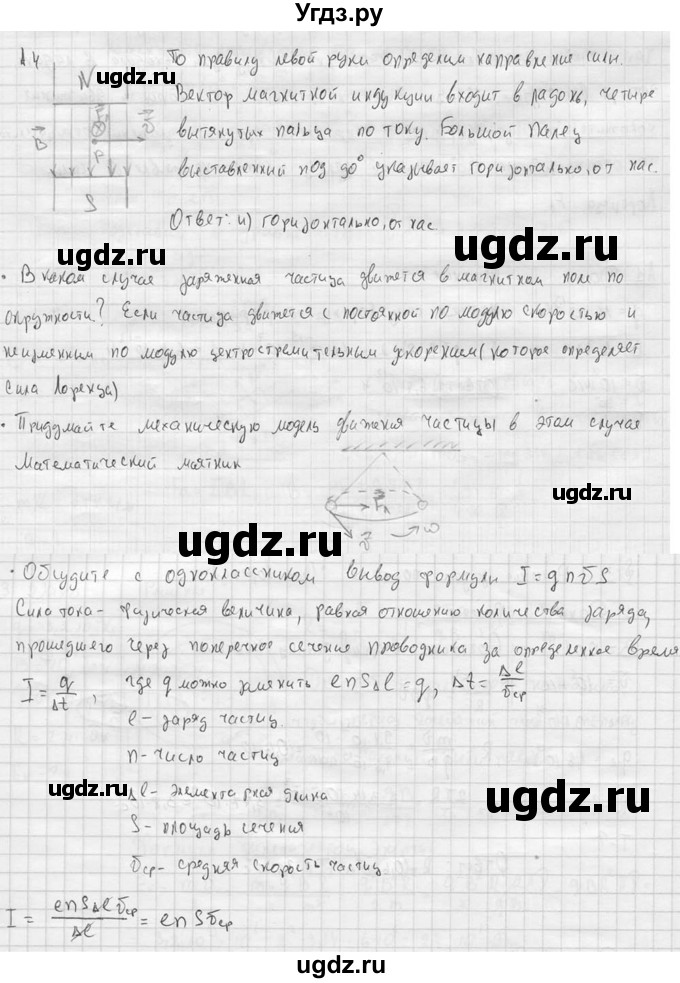 Угдз.ру
А4
N
То правилу левой руки определим направление силы.
Вектор магнитной индукции входит в ладонь, четыре
B
υ
P
вытянутых пальца по току. Большой палец
выставленный под 90° указывает горизонтально, от нас.
S
Ответ: и) горизонтально, от нас
ugdz.ru
ugdz.ru
ugdz.ru
ugdz.ru
• В каком случае заряженная частица движется в магнитном поле по
окружности? Если частица движется с постоянной по модулю скоростью и
неизменным по модулю центростремительным ускорением (которое определяет
сила Лоренца)
• Придумайте механическую модель движения частицы в этом случае
Математический маятник
ugdz.ru
Fл
ω
υ
ugdz.ru
• Обсудите с одноклассником вывод формулы I = qnυS
Сила тока - физическая величина, равная отношению количества заряда,
прошедшего через поперечное сечение проводника за определенное время
I = q/Δt, где q можно заменить enSΔl = q, Δt = Δl/υср
e - заряд частиц
n - число частиц
ugdz.ru
ugdz.ru
Δl - элементарная длина
S - площадь сечения
υср - средняя скорость частиц
ugdz.ru
I = enSΔlυср/Δl = enSυср
ugdz.ru